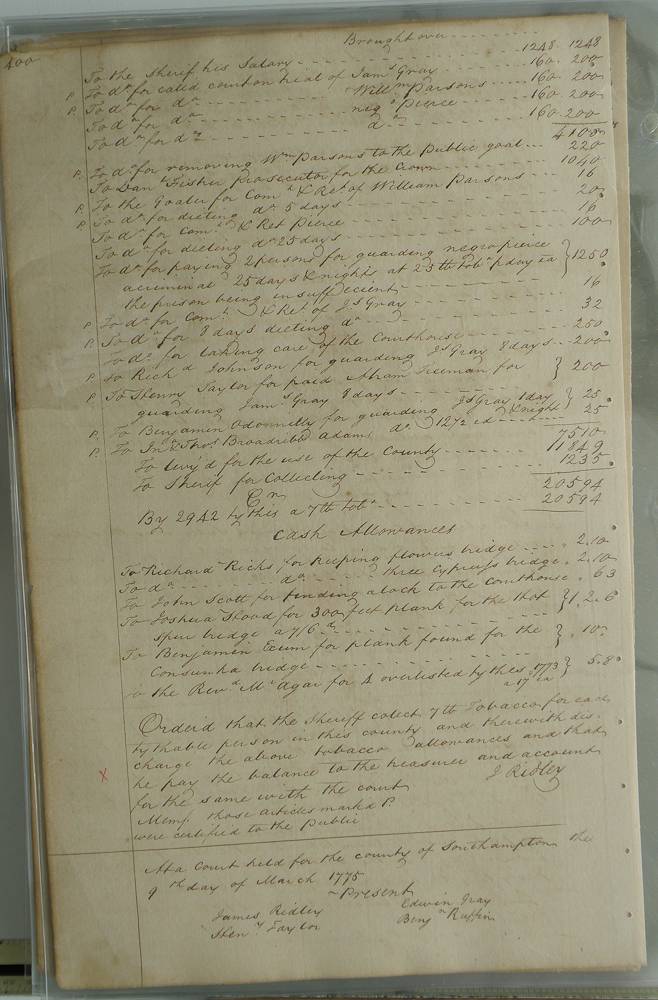 400
Brought over - - - - 1248 1248
To the Sherif his Salary - - - - 1248 1248
P. To do for called court on trial of Jams Gray - - - - 160 200
P. To do for do - - - - Willm Parsons - - - - 160 200
To do for do - - - - negro Pierce - - - - 160 200
To do for do - - - - do - - - - 160 200
4108
P. To do for removing Wm Parsons to the Public goal - - - 220
To Danl Fisher Prosecutor for the Crown - - - - 1040
P. To the Goaler for Comt & Ret of William Parsons - - - 16
P. To do for dieting do 5 days - - - - 20
To do for Comt & Ret Pierce - - - - 16
To do for dieting do 25 days - - - - 100
To do for paying 2 persons for guarding negro pierce
a criminal 25 days & nights at 25 th tobo p day ea } 1250
the prison being insufficient
P. To do for Comt & Ret of Js Gray - - - - 16
P. To do for 8 days dieting do - - - - 32
To do for taking care of the Courthouse - - - - 250
P. To Richd Johnson for guarding Js Gray 8 days - - 200
P. To Henry Taylor for paid Abram Freeman for } 200
guarding Jams Gray 8 days - - - -
P. To Benjamin Odonnelly for guarding Js Gray 1 day } 25
& night
P. To Jno & Thos Broadribb Adams do 12½ ea - - - - 25
7510
To levy'd for the use of the County - - - - 11849
To Sherif for Collecting - - - - 1235
20594
Cr
By 2942 tythes a 7 th tobo - - - - 20594
Cash Allowances
To Richard Ricks for keeping flowers bridge - - - - 2.10
To do - - - - do - - - - three Cypress bridge . 2.10
To John Scott for finding a lock to the Courthouse . 6 3
To Joshua Hood for 300 feet plank for the Hot } 1.2.6
spur bridge a 7/6 - - - -
To Benjamin Exum for plank found for the } . 10
Consunka bridge - - - -
To the Revd Mr Agar for 4 overlisted tythes 1773 } 5.8
a 17 ea
Order'd that the Sheriff colect 7 th Tobacco for each
tythable person in this county and therewith dis-
charge the above tobacco allowances and that
he pay the balance to the treasurer and account
X for the same with the court J Ridley
Memo those articles markd P.
were certified to the Public
At a Court held for the county of Southampton the
9 th day of March 1775
Present
James Ridley Edwin Gray
Heny Taylor Benjn Ruffin